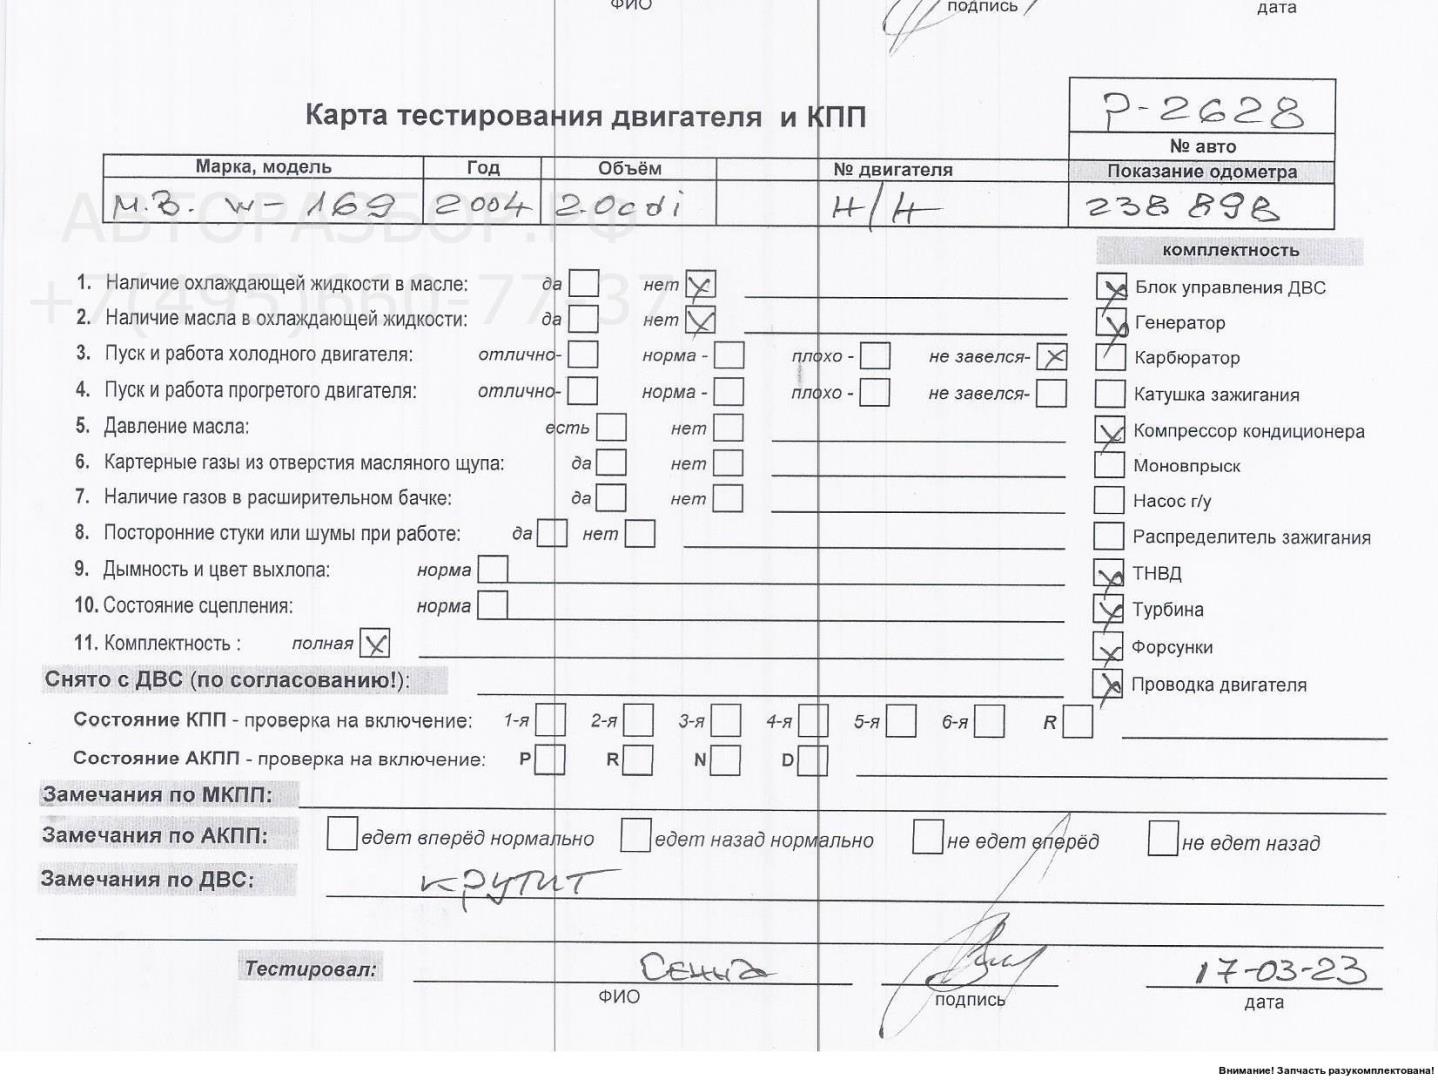 ФИО подпись дата
Карта тестирования двигателя и КПП
Р-2628
№ авто
Марка, модель Год Объём № двигателя Показание одометра
М.В. W-169 2004 2.0cdi Н/Н 238 898
АВТОРАЗБОР.РФ
+7(495)660-77-37
комплектность
1. Наличие охлаждающей жидкости в масле: да нет Блок управления ДВС
2. Наличие масла в охлаждающей жидкости: да нет Генератор
3. Пуск и работа холодного двигателя: отлично- норма - плохо - не завелся- Карбюратор
4. Пуск и работа прогретого двигателя: отлично- норма - плохо - не завелся- Катушка зажигания
5. Давление масла: есть нет Компрессор кондиционера
6. Картерные газы из отверстия масляного щупа: да нет Моновпрыск
7. Наличие газов в расширительном бачке: да нет Насос г/у
8. Посторонние стуки или шумы при работе: да нет Распределитель зажигания
9. Дымность и цвет выхлопа: норма ТНВД
10. Состояние сцепления: норма Турбина
11. Комплектность : полная Форсунки
Снято с ДВС (по согласованию!): Проводка двигателя
Состояние КПП - проверка на включение: 1-я 2-я 3-я 4-я 5-я 6-я R
Состояние АКПП - проверка на включение: P R N D
Замечания по МКПП:
Замечания по АКПП: едет вперёд нормально едет назад нормально не едет вперёд не едет назад
Замечания по ДВС: крутит
Тестировал: 17-03-23
ФИО подпись дата
Внимание! Запчасть разукомплектована!